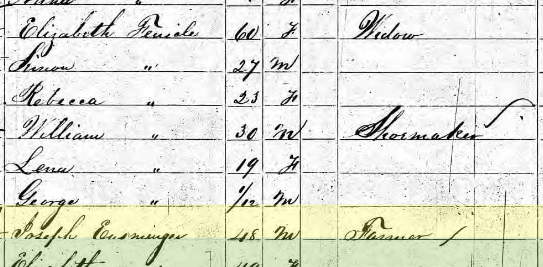 Elizabeth Fenicle 60 F Widow
Simon " 27 M
Rebecca " 23 F
William " 30 M Shoemaker
Lena " 19 F
George " 1/12 M
Joseph Ensminger 48 M Farmer /
Elizabeth F